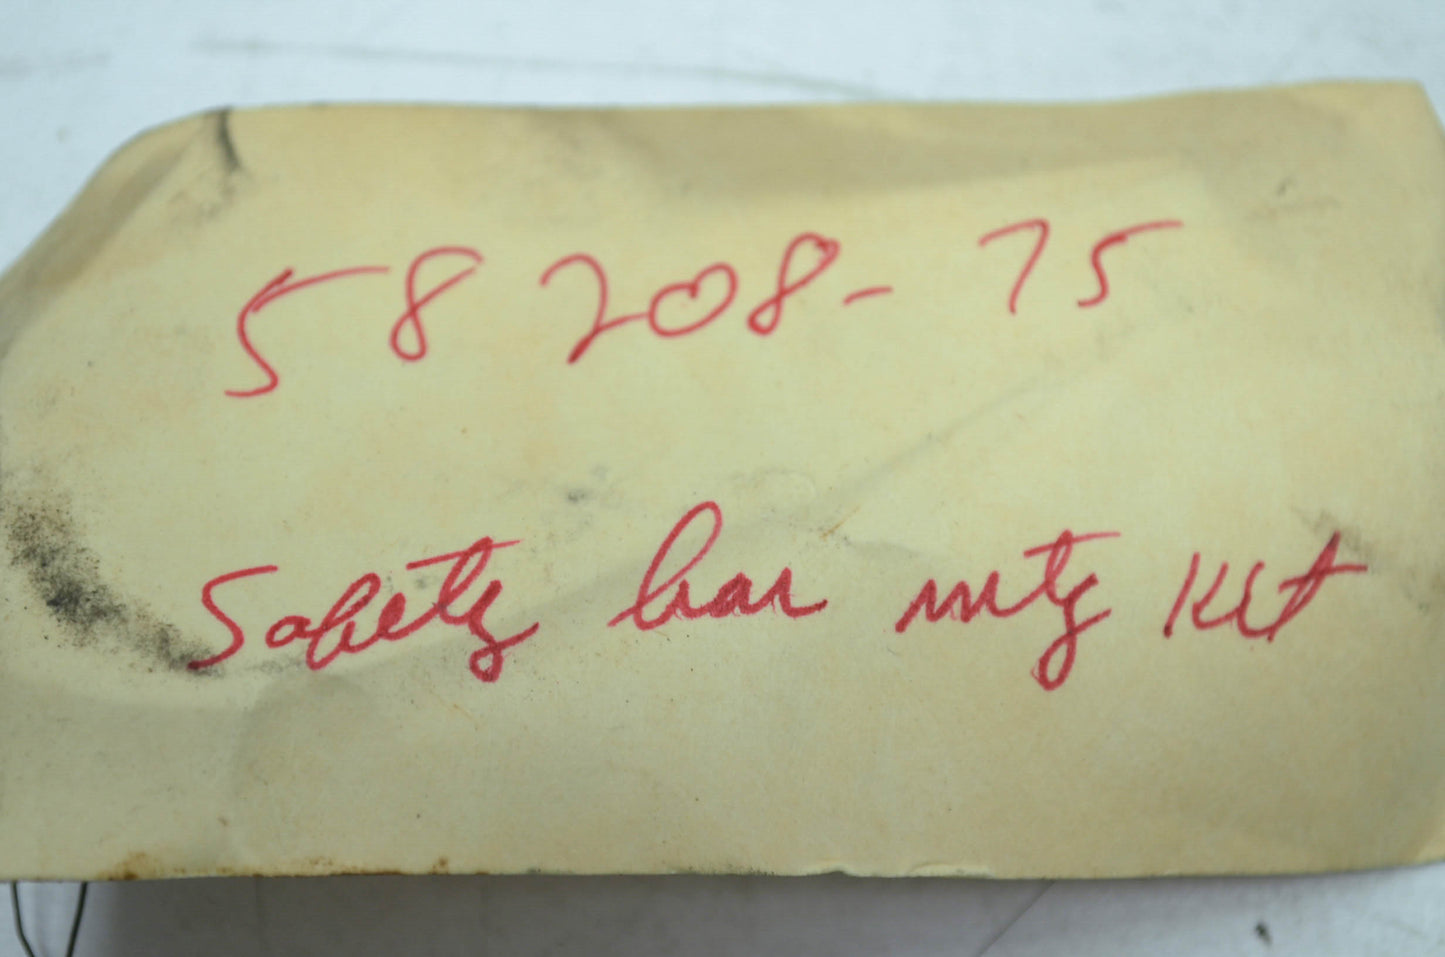 58208-75
Safety bar mtg Kit